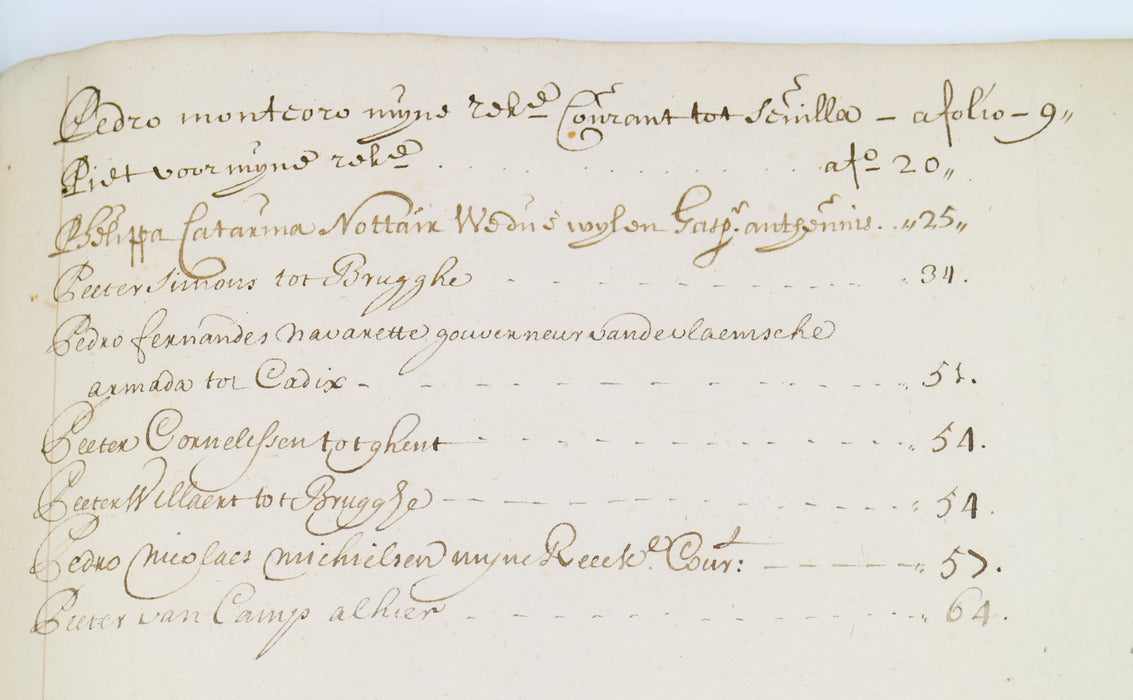 Pedro monteoro myne reke Courant tot Sevilla - a folio - 9,,
Piet voor myne reke . . . . . . . . . afo 20,,
Phelippa Catarina Nottair Weduë wylen Gaspr. anthennis. . ,,25,,
Peeter Simons tot Brugghe - - - - - - - - 34.
Pedro fernandes navarette gouverneur vande vlaemsche
armada tot Cadix - - - - - - - - - - - 51.
Peeter Cornelessen tot ghent - - - - - - - - 54.
Peeter Willaert tot Brugghe - - - - - - - - 54.
Pedro Nicolaes Michielsen myne Reeck. Court: - - - - - 57.
Peeter van Camp alhier - - - - - - - - 64.